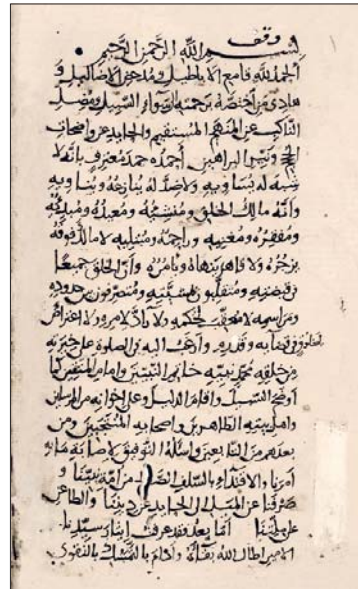 وقف
بسم الله الرحمن الرحيم
الحمد لله قامع الاباطيل ومدحض الاضاليل و
هادي من اختصه برحمته لسواء السبيل ومضل
الناكب عن المنهج المستقيم والحايد عن واضحات
الحجج ونير البراهين أحمده حمد معترف بانه لا
شبه له يساويه ولا ضد له ينازعه ويناويه
وأنه مالك الخلق ومنشئه ومعيده ومبديه
ومفقره ومغنيه وراحمه ومبتليه لا مالك فوقه
يزجره ولا قاهر ينهاه ويأمره وأن الخلق جميعا
في قبضته ومتقلبون بمشيئته ومتصرفون بين حدوده
ومراسمه لا معقب لحكمه ولا راد لامره ولا اعتراض
لمخلوق في قضايه وقدره وأرغب اليه في الصلوة على خيرته
من خلقه محمد نبيه خاتم النبيين وامام المتقين كما
أوضح السبيل وأقام الدليل وعلى اخوانه من المرسلين
واهل بيته الطاهرين واصحابه المنتخبين ومن
بعدهم من التابعين واسئله التوفيق لاصابة ما به
أمرنا والاقتداء بالسلف الصالح من أمة نبينا و
صرفنا عن الميل الى الحايد عن ديننا والطاعن
على ملتنا أما بعد فقد عرفت ايثار سيدنا
الامير اطال الله بقاه وادام بالتمسك بالتقوى